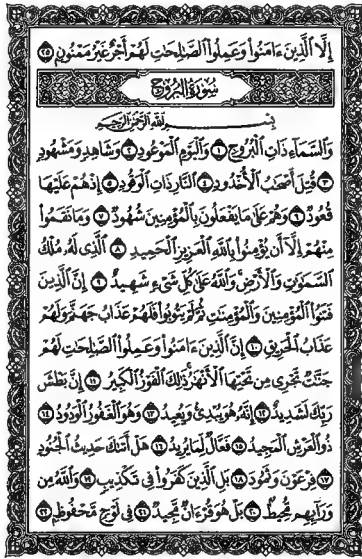 إِلَّا الَّذِينَ ءَامَنُوا وَعَمِلُوا الصَّالِحَاتِ لَهُمْ أَجْرٌ غَيْرُ مَمْنُونٍ ٢٥
سُورَةُ الْبُرُوجِ
بِسْمِ اللَّهِ الرَّحْمَٰنِ الرَّحِيمِ
وَالسَّمَاءِ ذَاتِ الْبُرُوجِ ١ وَالْيَوْمِ الْمَوْعُودِ ٢ وَشَاهِدٍ وَمَشْهُودٍ
٣ قُتِلَ أَصْحَابُ الْأُخْدُودِ ٤ النَّارِ ذَاتِ الْوَقُودِ ٥ إِذْ هُمْ عَلَيْهَا
قُعُودٌ ٦ وَهُمْ عَلَىٰ مَا يَفْعَلُونَ بِالْمُؤْمِنِينَ شُهُودٌ ٧ وَمَا نَقَمُوا
مِنْهُمْ إِلَّا أَن يُؤْمِنُوا بِاللَّهِ الْعَزِيزِ الْحَمِيدِ ٨ الَّذِي لَهُ مُلْكُ
السَّمَٰوَٰتِ وَالْأَرْضِ وَاللَّهُ عَلَىٰ كُلِّ شَيْءٍ شَهِيدٌ ٩ إِنَّ الَّذِينَ
فَتَنُوا الْمُؤْمِنِينَ وَالْمُؤْمِنَٰتِ ثُمَّ لَمْ يَتُوبُوا فَلَهُمْ عَذَابُ جَهَنَّمَ وَلَهُمْ
عَذَابُ الْحَرِيقِ ١٠ إِنَّ الَّذِينَ ءَامَنُوا وَعَمِلُوا الصَّٰلِحَٰتِ لَهُمْ
جَنَّٰتٌ تَجْرِي مِن تَحْتِهَا الْأَنْهَٰرُ ذَٰلِكَ الْفَوْزُ الْكَبِيرُ ١١ إِنَّ بَطْشَ
رَبِّكَ لَشَدِيدٌ ١٢ إِنَّهُ هُوَ يُبْدِئُ وَيُعِيدُ ١٣ وَهُوَ الْغَفُورُ الْوَدُودُ ١٤
ذُو الْعَرْشِ الْمَجِيدُ ١٥ فَعَّالٌ لِّمَا يُرِيدُ ١٦ هَلْ أَتَىٰكَ حَدِيثُ الْجُنُودِ
١٧ فِرْعَوْنَ وَثَمُودَ ١٨ بَلِ الَّذِينَ كَفَرُوا فِي تَكْذِيبٍ ١٩ وَاللَّهُ مِن
وَرَائِهِم مُّحِيطٌ ٢٠ بَلْ هُوَ قُرْءَانٌ مَّجِيدٌ ٢١ فِي لَوْحٍ مَّحْفُوظٍ ٢٢